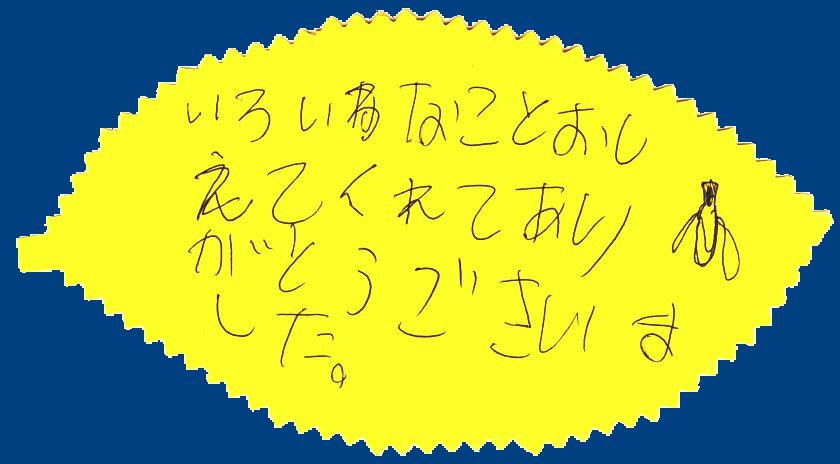 いろいろなことおし
えてくれてあり
がとうございま
した。